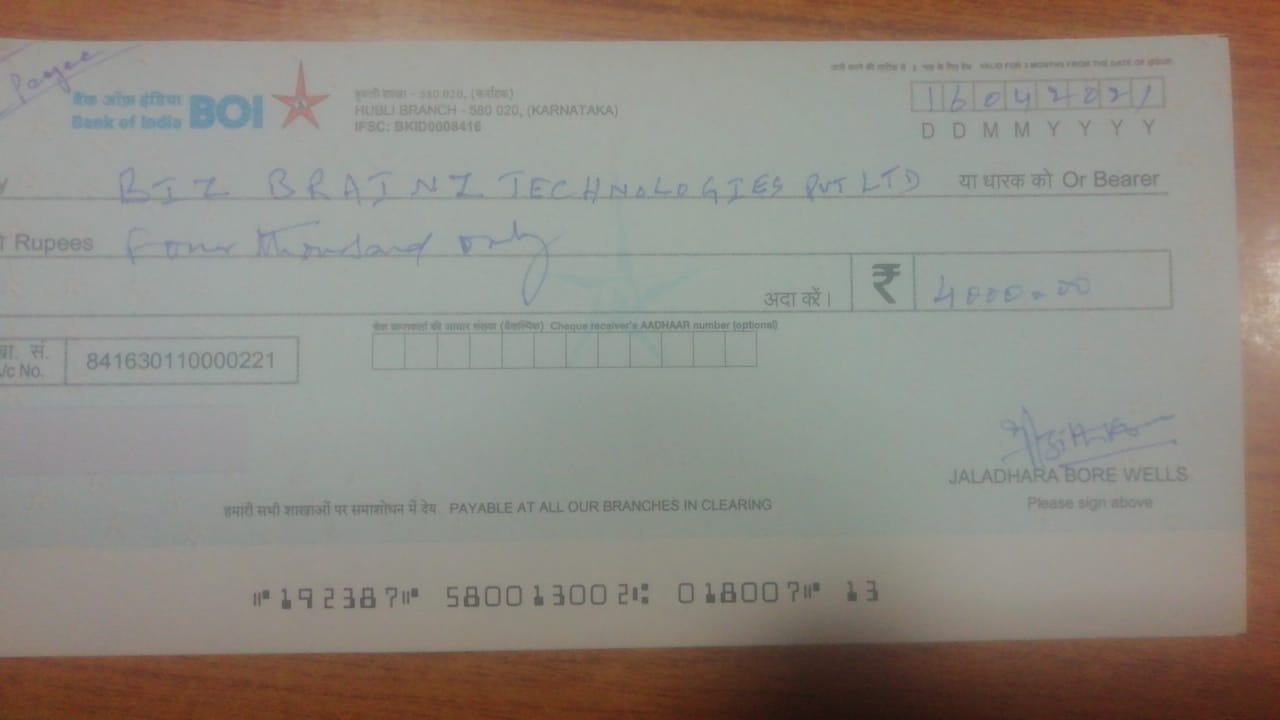 Payee
बैंक ऑफ़ इंडिया
Bank of India BOI
हुबली शाखा - 580 020, (कर्नाटक)
HUBLI BRANCH - 580 020, (KARNATAKA)
IFSC: BKID0008416
VALID FOR 3 MONTHS FROM THE DATE OF ISSUE
16042021
D D M M Y Y Y Y
BIZ BRAINZ TECHNOLOGIES PVT LTD या धारक को Or Bearer
Rupees Four thousand only
अदा करें। ₹ 4000.00
Cheque receiver's AADHAAR number (optional)
सं.
No. 841630110000221
JALADHARA BORE WELLS
Please sign above
हमारी सभी शाखाओं पर समाशोधन में देय PAYABLE AT ALL OUR BRANCHES IN CLEARING
⑈192387⑈ 580013002⑆ 018007⑈ 13